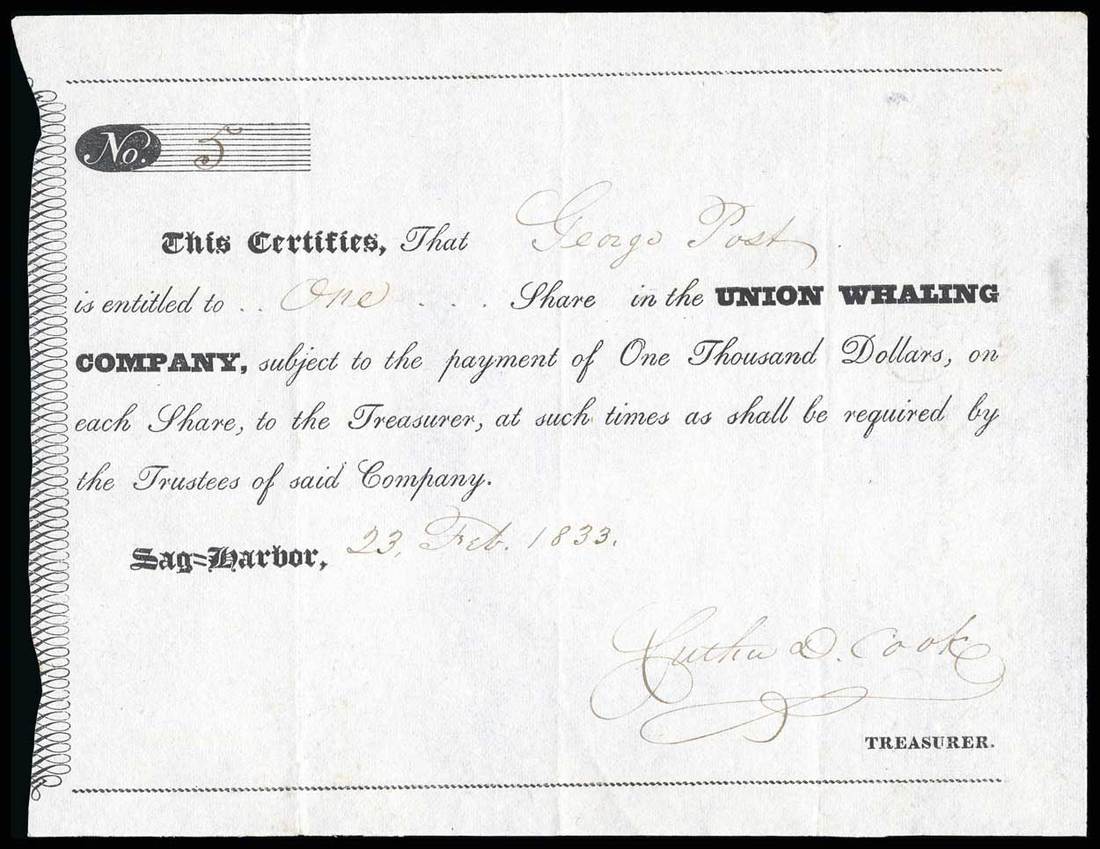 No. 5
This Certifies, That George Post
is entitled to .. One .... Share in the UNION WHALING
COMPANY, subject to the payment of One Thousand Dollars, on
each Share, to the Treasurer, at such times as shall be required by
the Trustees of said Company.
Sag=Harbor, 23, Feb. 1833.
D. Cook
TREASURER.